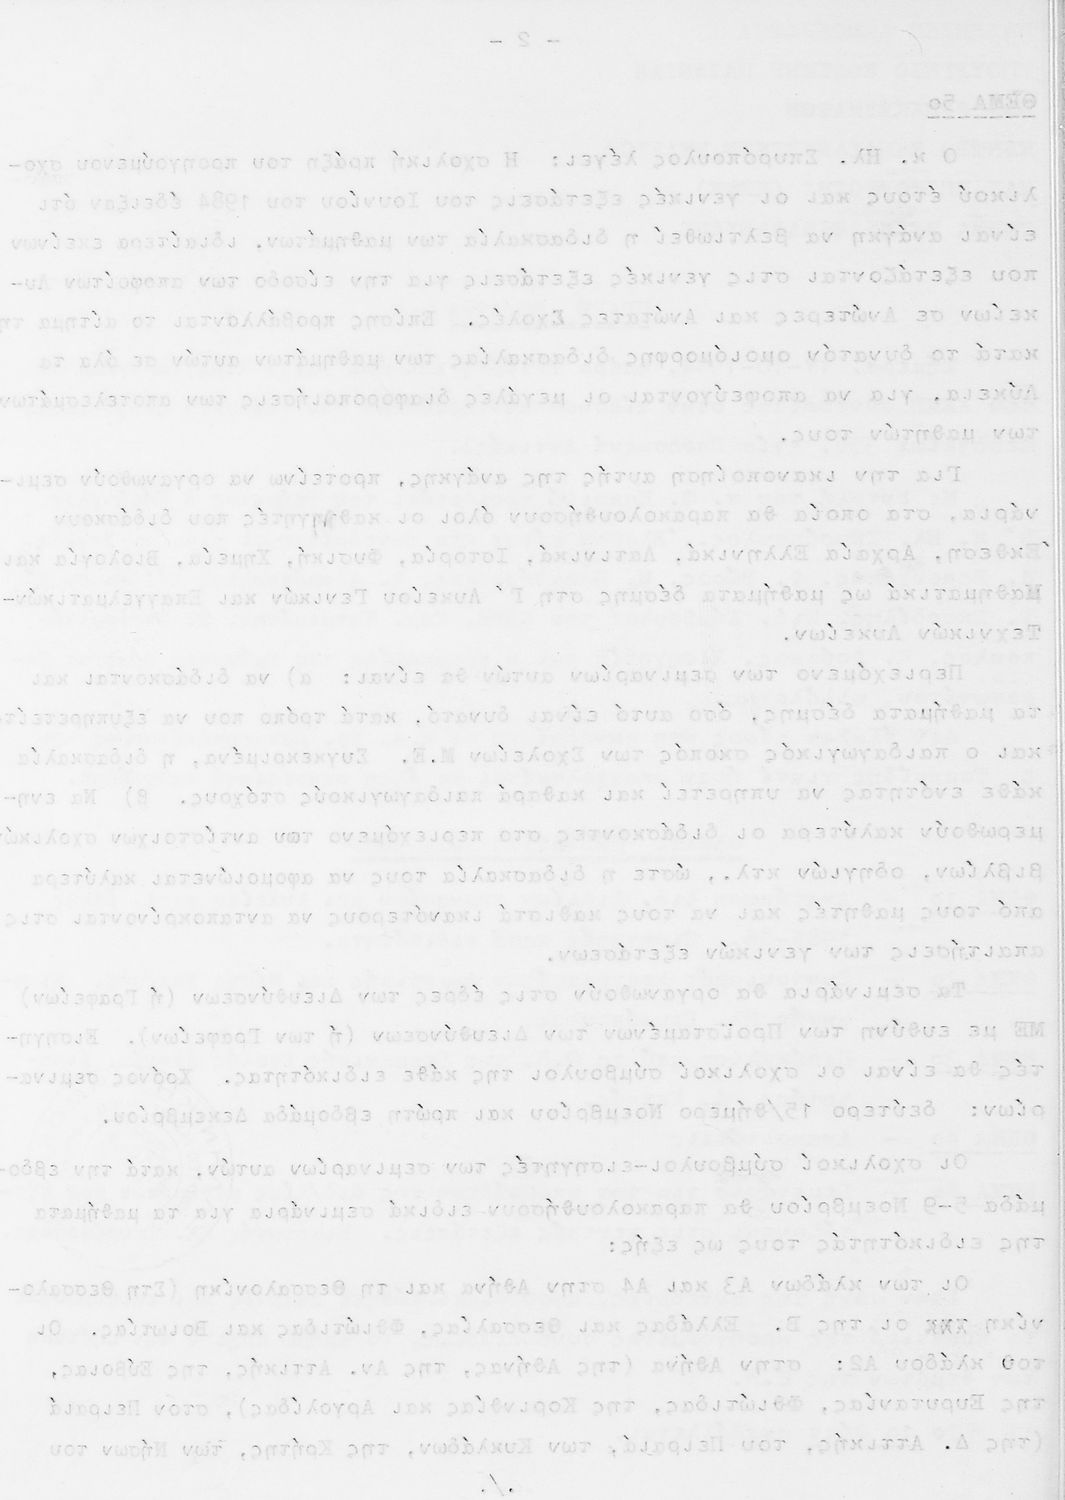 - 2 -
ΘΕΜΑ 5ο
Ο κ. Ηλ. Σπυρόπουλος λέγει: Η σχολική πράξη του προηγούμενου σχο-
λικού έτους και οι γενικές εξετάσεις του Ιουνίου του 1984 έδειξαν ότι
είναι ανάγκη να βελτιωθεί η διδασκαλία των μαθημάτων, ιδιαίτερα εκείνων
που εξετάζονται στις γενικές εξετάσεις για την είσοδο των αποφοίτων Λυ-
κείων σε Ανώτερες και Ανώτατες Σχολές. Επίσης προβάλλονται το αίτημα τη
κατά το δυνατόν ομοιόμορφης διδασκαλίας των μαθημάτων αυτών σε όλα τα
Λύκεια, για να αποφεύγονται οι μεγάλες διαφοροποιήσεις των αποτελεσμάτων
των μαθητών τους.
Για την ικανοποίηση αυτής της ανάγκης, προτείνω να οργανωθούν σεμι-
νάρια, στα οποία θα παρακολουθήσουν όλοι οι καθηγητές που διδάσκουν
Έκθεση, Αρχαία Ελληνικά, Λατινικά, Ιστορία, Φυσική, Χημεία, Βιολογία και
Μαθηματικά ως μαθήματα δέσμης στη Γ΄ Λυκείου Γενικών και Επαγγελματικών-
Τεχνικών Λυκείων.
Περιεχόμενο των σεμιναρίων αυτών θα είναι: α) να διδάσκονται και
τα μαθήματα δέσμης, όσο αυτό είναι δυνατό, κατά τρόπο που να εξυπηρετείτ
και ο παιδαγωγικός σκοπός των Σχολείων Μ.Ε. Συγκεκριμένα, η διδασκαλία
κάθε ενότητας να υπηρετεί και καθαρά παιδαγωγικούς στόχους. β) Να ενη-
μερωθούν καλύτερα οι διδάσκοντες στο περιεχόμενο των αντίστοιχων σχολικών
βιβλίων, οδηγιών κτλ., ώστε η διδασκαλία τους να αφομοιώνεται καλύτερα
από τους μαθητές και να τους καθιστά ικανότερους να ανταποκρίνονται στις
απαιτήσεις των γενικών εξετάσεων.
Τα σεμινάρια θα οργανωθούν στις έδρες των Διευθύνσεων (ή Γραφείων)
ΜΕ με ευθύνη των Προϊσταμένων των Διευθύνσεων (ή των Γραφείων). Εισηγη-
τές θα είναι οι σχολικοί σύμβουλοι της κάθε ειδικότητας. Χρόνος σεμινα-
ρίων: δεύτερο 15/θήμερο Νοεμβρίου και πρώτη εβδομάδα Δεκεμβρίου.
Οι σχολικοί σύμβουλοι-εισηγητές των σεμιναρίων αυτών, κατά την εβδο-
μάδα 5-9 Νοεμβρίου θα παρακολουθήσουν ειδικά σεμινάρια για τα μαθήματα
της ειδικότητάς τους ως εξής:
Οι των κλάδων Α3 και Α4 στην Αθήνα και τη Θεσσαλονίκη (Στη Θεσσαλο-
νίκη οι της Β. Ελλάδας και Θεσσαλίας, Φθιώτιδας και Βοιωτίας. Οι
του κλάδου Α2: στην Αθήνα (της Αθήνας, της Αν. Αττικής, της Εύβοιας,
της Ευρυτανίας, Φθιώτιδας, της Κορινθίας και Αργολίδας), στον Πειραιά
(της Δ. Αττικής, του Πειραιά, των Κυκλάδων, της Κρήτης, των Νήσων του
./.